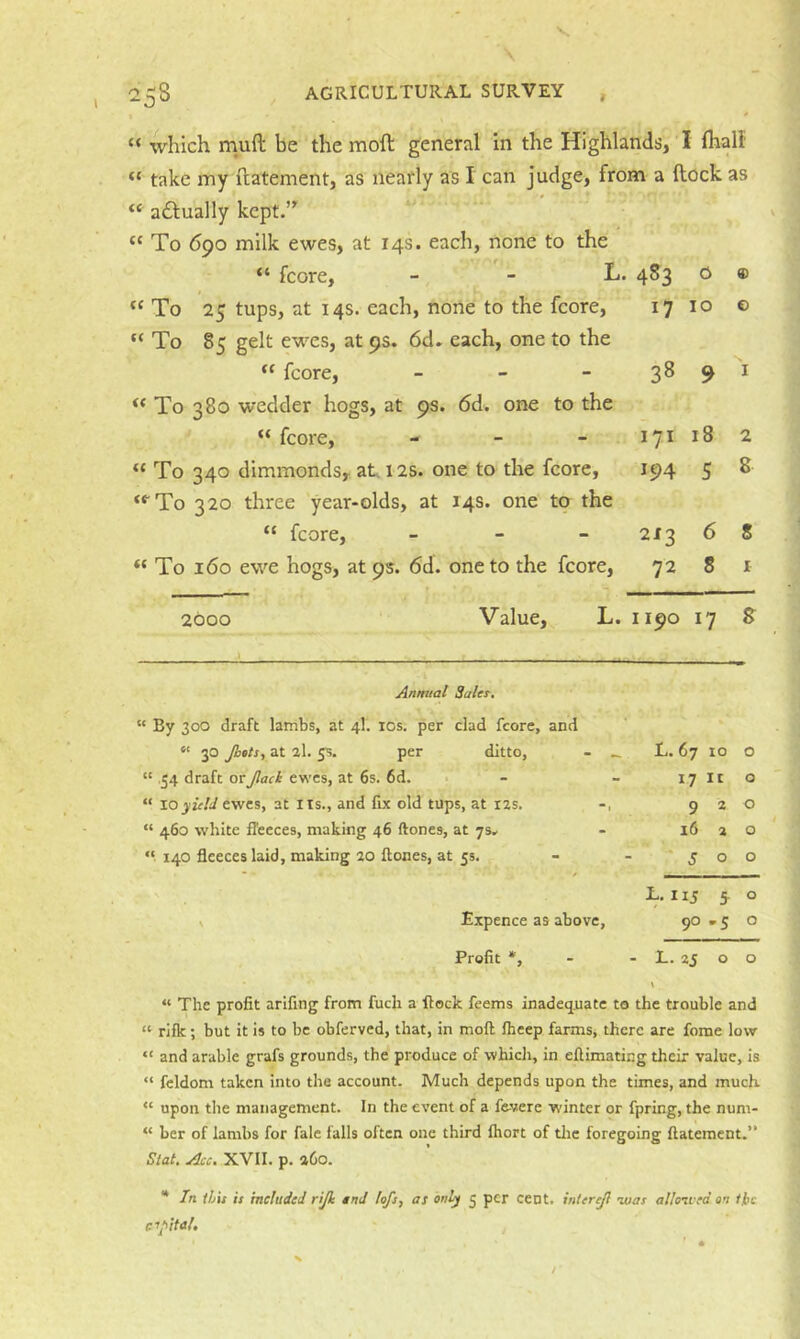 258 AGRICULTURAL SURVEY
“ which muſt be the moſt general in the Highlands, I ſhall
“ take my ſtatement, as nearly as I can judge, from a ſtock as
“ actually kept.”
“ To 690 milk ewes, at 14s. each, none to the
“ ſcore, - - L. 483 0 0
“ To 25 tups, at 14s. each, none to the ſcore, 17 10 0
“ To 85 gelt ewes, at 9s. 6d. each, one to the
“ ſcore, - - - 38 9 1
“ To 380 wedder hogs, at 9s. 6d. one to the
“ ſcore, - - - 171 18 2
“ To 340 dimmonds, at 12s. one to the ſcore, 194 5 8
“ To 320 three year-olds, at 14s. one to the
“ ſcore, - - - 213 6 8
“ To 160 ewe hogs, at 9s. 6d. one to the ſcore, 72 8 1
2000 Value, L. 1190 17 8
Annual Sales.
“ By 300 draft lambs, at 4l. 10s. per clad ſcore, and
“ 30 ſhots, at 2l. 5s. per ditto, - - L. 67 10 0
“ 54 draft or ſlack ewes, at 6s. 6d. - - 17 11 0
“ 10 yield ewes, at 11s., and ſix old tups, at 12s. - 9 2 0
“ 460 white fleeces, making 46 ſtones, at 7s. - 16 2 0
“ 140 fleeces laid, making 20 ſtones, at 5s. - - 5 0 0
L. 115 5 0
Expence as above, 90 5 0
Profit *, - - L. 25 0 0
“ The profit ariſing from ſuch a ſtock ſeems inadequate to the trouble and
“ riſk ; but it is to be obſerved, that, in moſt ſheep farms, there are ſome low
“ and arable graſs grounds, the produce of which, in eſtimating their value, is
“ ſeldom taken into the account. Much depends upon the times, and much
“ upon the management. In the event of a ſevere winter or ſpring, the num-
“ ber of lambs for ſale falls often one third ſhort of the foregoing ſtatement.”
Stat. Acc. XVII. p. 260.
* In this is included riſk and loſs, as only 5 per cent. intereſt was allowed on the
capital.